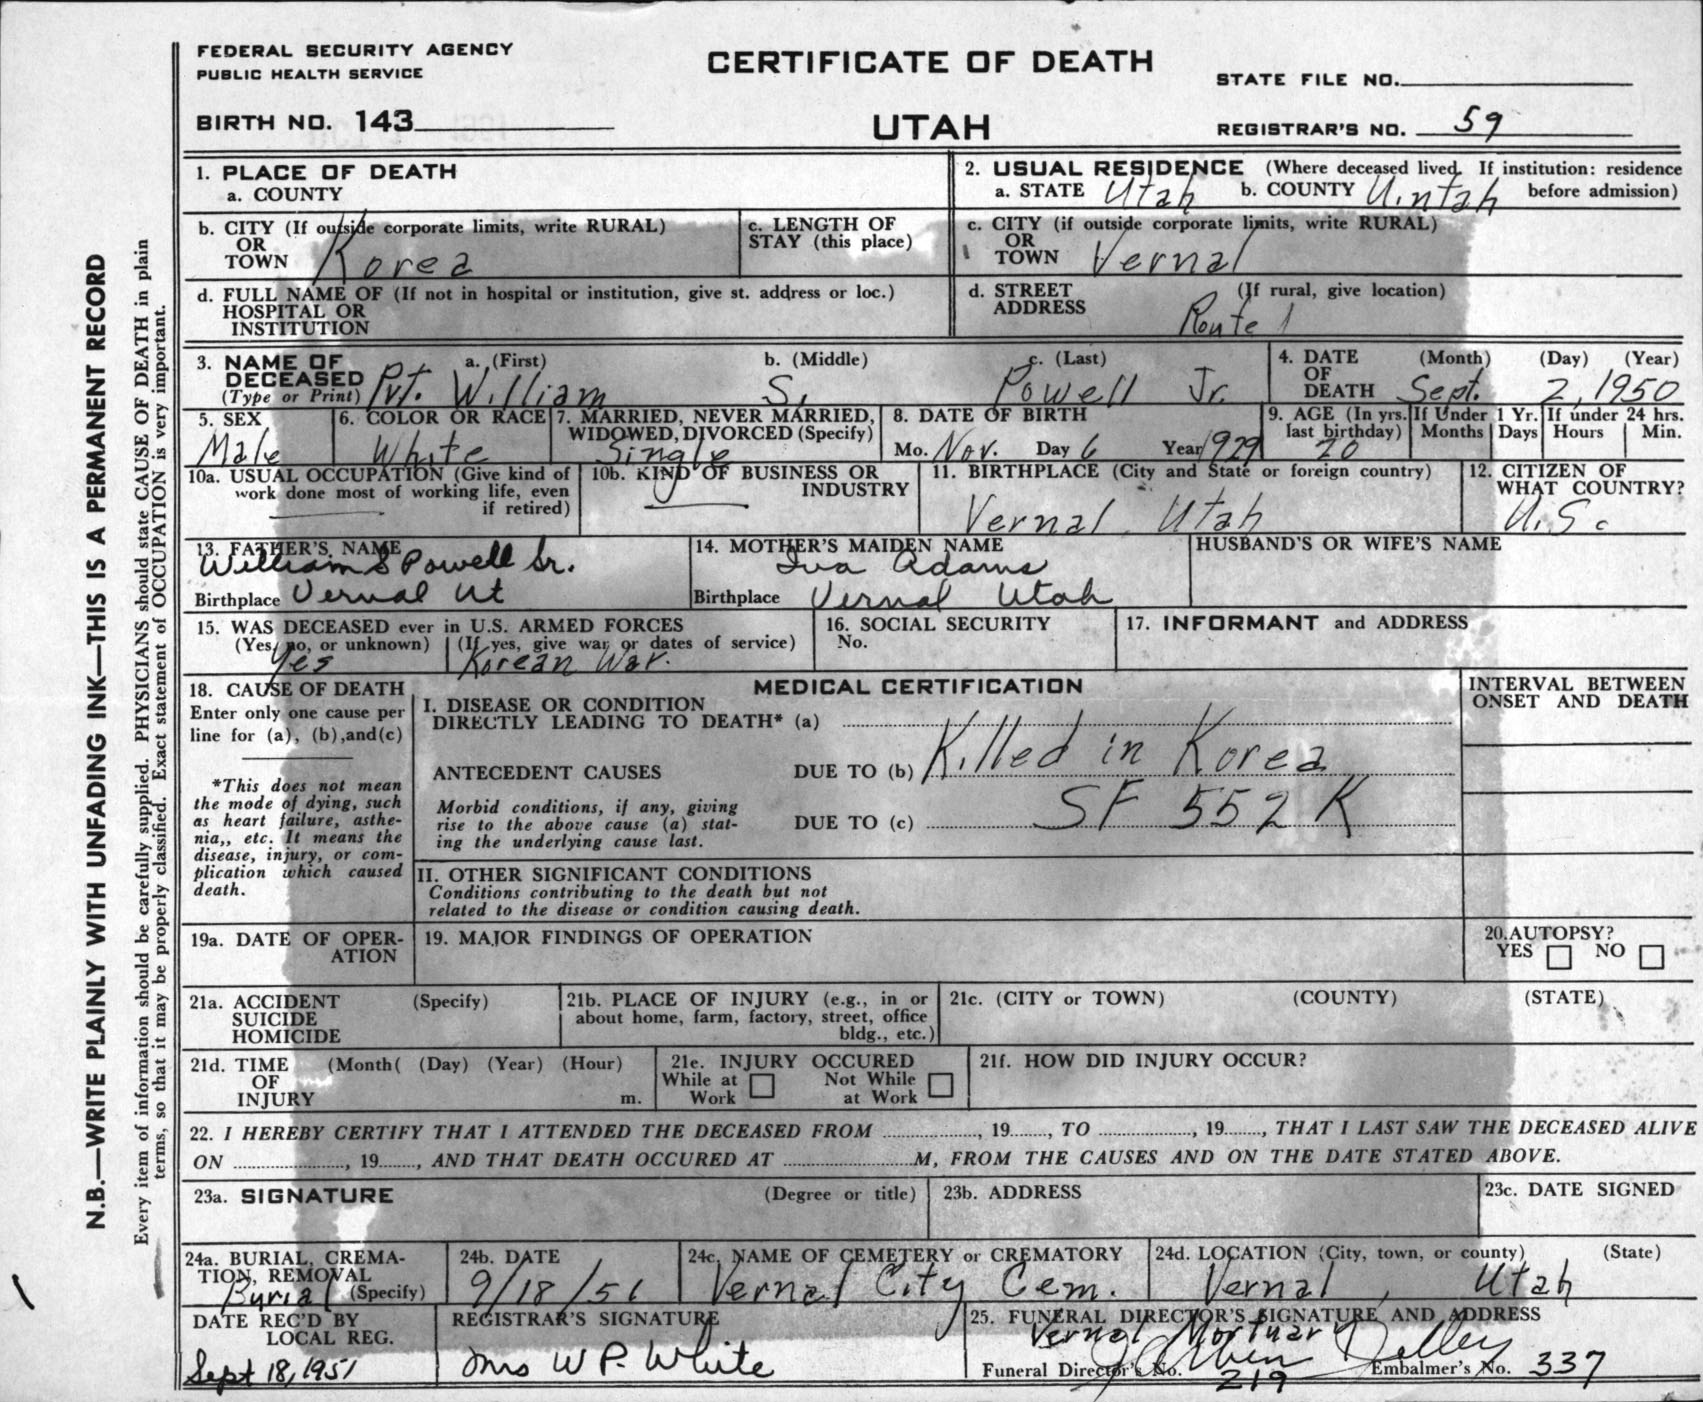 FEDERAL SECURITY AGENCY
PUBLIC HEALTH SERVICE
CERTIFICATE OF DEATH
STATE FILE NO.
BIRTH NO. 143
UTAH
REGISTRAR'S NO. 59
1. PLACE OF DEATH
a. COUNTY
2. USUAL RESIDENCE (Where deceased lived. If institution: residence
a. STATE Utah b. COUNTY Uintah before admission)
b. CITY (If outside corporate limits, write RURAL)
OR
TOWN Korea
c. LENGTH OF
STAY (this place)
c. CITY (if outside corporate limits, write RURAL)
OR
TOWN Vernal
d. FULL NAME OF (If not in hospital or institution, give st. address or loc.)
HOSPITAL OR
INSTITUTION
d. STREET (If rural, give location)
ADDRESS Route 1
3. NAME OF a. (First) b. (Middle) c. (Last)
DECEASED
(Type or Print) Pvt. William S. Powell Jr.
4. DATE (Month) (Day) (Year)
OF
DEATH Sept. 2, 1950
5. SEX
Male
6. COLOR OR RACE
White
7. MARRIED, NEVER MARRIED,
WIDOWED, DIVORCED (Specify)
Single
8. DATE OF BIRTH
Mo. Nov. Day 6 Year 1929
9. AGE (In yrs.
last birthday)
20
If Under 1 Yr.
Months Days
If under 24 hrs.
Hours Min.
10a. USUAL OCCUPATION (Give kind of
work done most of working life, even
if retired)
10b. KIND OF BUSINESS OR
INDUSTRY
11. BIRTHPLACE (City and State or foreign country)
Vernal, Utah
12. CITIZEN OF
WHAT COUNTRY?
U.S.
13. FATHER'S NAME
William S Powell Sr.
Birthplace Vernal Ut
14. MOTHER'S MAIDEN NAME
Iva Adams
Birthplace Vernal Utah
HUSBAND'S OR WIFE'S NAME
15. WAS DECEASED ever in U.S. ARMED FORCES
(Yes, no, or unknown) (If yes, give war or dates of service)
Yes Korean War.
16. SOCIAL SECURITY
No.
17. INFORMANT and ADDRESS
18. CAUSE OF DEATH
Enter only one cause per
line for (a), (b), and (c)
*This does not mean
the mode of dying, such
as heart failure, asthe-
nia,, etc. It means the
disease, injury, or com-
plication which caused
death.
MEDICAL CERTIFICATION
I. DISEASE OR CONDITION
DIRECTLY LEADING TO DEATH* (a)
ANTECEDENT CAUSES DUE TO (b) Killed in Korea
Morbid conditions, if any, giving
rise to the above cause (a) stat-
ing the underlying cause last.
DUE TO (c) SF 552 K
INTERVAL BETWEEN
ONSET AND DEATH
II. OTHER SIGNIFICANT CONDITIONS
Conditions contributing to the death but not
related to the disease or condition causing death.
19a. DATE OF OPER-
ATION
19. MAJOR FINDINGS OF OPERATION
20. AUTOPSY?
YES NO
21a. ACCIDENT (Specify)
SUICIDE
HOMICIDE
21b. PLACE OF INJURY (e.g., in or
about home, farm, factory, street, office
bldg., etc.)
21c. (CITY or TOWN) (COUNTY) (STATE)
21d. TIME (Month( (Day) (Year) (Hour)
OF
INJURY m.
21e. INJURY OCCURED
While at Not While
Work at Work
21f. HOW DID INJURY OCCUR?
22. I HEREBY CERTIFY THAT I ATTENDED THE DECEASED FROM , 19 , TO , 19 , THAT I LAST SAW THE DECEASED ALIVE
ON , 19 , AND THAT DEATH OCCURED AT M, FROM THE CAUSES AND ON THE DATE STATED ABOVE.
23a. SIGNATURE (Degree or title)
23b. ADDRESS
23c. DATE SIGNED
24a. BURIAL, CREMA-
TION, REMOVAL
Burial (Specify)
24b. DATE
9/18/51
24c. NAME OF CEMETERY or CREMATORY
Vernal City Cem.
24d. LOCATION (City, town, or county) (State)
Vernal, Utah
DATE REC'D BY
LOCAL REG.
Sept 18, 1951
REGISTRAR'S SIGNATURE
Mrs W P. White
25. FUNERAL DIRECTOR'S SIGNATURE AND ADDRESS
Vernal Mortuary
Funeral Director's No. 219 Embalmer's No. 337
N.B.—WRITE PLAINLY WITH UNFADING INK—THIS IS A PERMANENT RECORD
Every item of information should be carefully supplied. PHYSICIANS should state CAUSE OF DEATH in plain
terms, so that it may be properly classified. Exact statement of OCCUPATION is very important.